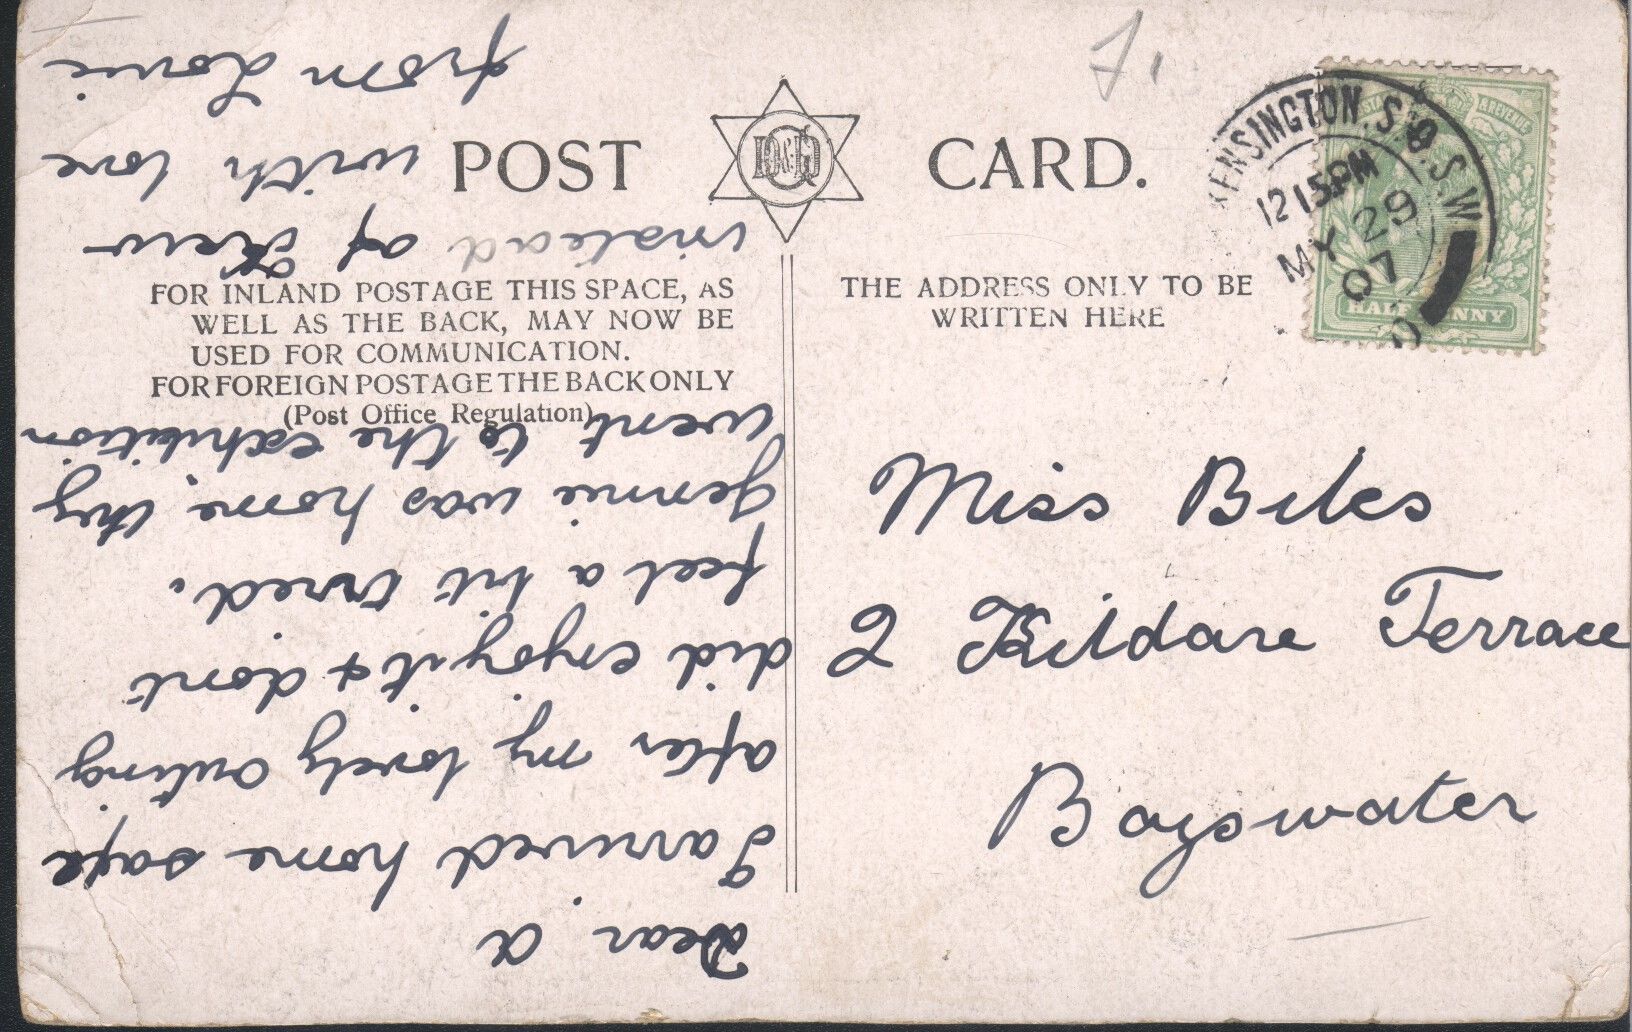 POST CARD.
D&D G
FOR INLAND POSTAGE THIS SPACE, AS
WELL AS THE BACK, MAY NOW BE
USED FOR COMMUNICATION.
FOR FOREIGN POSTAGE THE BACK ONLY
(Post Office Regulation)
THE ADDRESS ONLY TO BE
WRITTEN HERE
KENSINGTON.S.O.S.W
12 15PM
MY 29
07
POSTAGE & REVENUE
HALF PENNY
Miss Biles
2 Kildare Terrace
Bayswater
Dear A
I arrived home safe
after my lovely outing
did enjoy it & dont
feel a bit tired.
Jennie was home, they
went to the exhibition
instead of Kew
with love
from Lovie